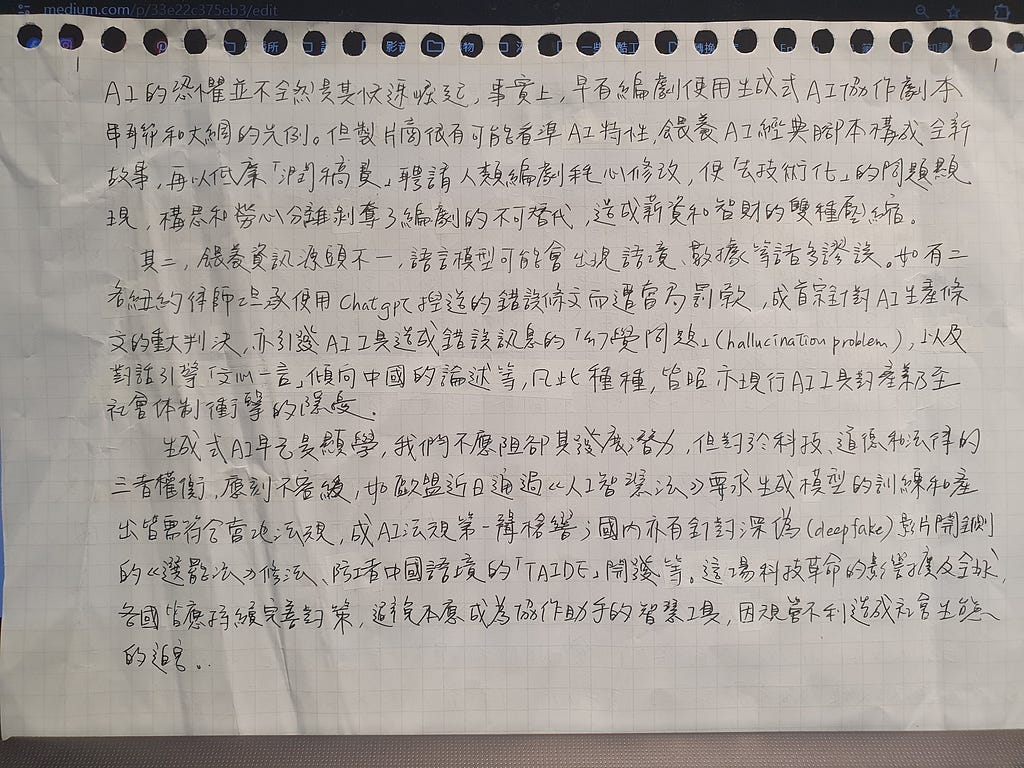 medium.com/p/33e22c375eb3/edit
AI的恐懼並不全然是其快速崛起,事實上,早有編劇使用生成式AI協作劇本
串聯和大綱的先例。但製片商很有可能看準AI特性,餵養AI經典腳本構成全新
故事,再以低廉「潤稿費」聘請人類編劇耗心修改,使「去技術化」的問題顯
現,構思和勞心分離剝奪了編劇的不可替代,造成薪資和智財的雙種壓縮。
其二,餵養資訊源頭不一,語言模型可能會出現語境、數據等諸多謬誤。如有二
名紐約律師坦承使用Chatgpt捏造的錯誤條文而遭當局罰款,成首宗針對AI生產條
文的重大判決,亦引發AI工具造成錯誤訊息的「幻覺問題」(hallucination problem),以及
對話引擎「文心一言」傾向中國的論述等,凡此種種,皆昭示現行AI工具對產業乃至
社會体制衝擊的隱憂.
生成式AI早已是顯學,我們不應阻卻其發展潛力,但對於科技、道德和法律的
三者權衡,應刻不容緩,如歐盟近日通過《人工智慧法》要求生成模型的訓練和產
出皆需符合當地法規,成AI法規第一聲槍響;國內亦有針對深偽(deepfake)影片開鍘
的《選罷法》修法、防堵中國語境的「TAIDE」開發等。這場科技革命的影響擴及全球,
各國皆應持續完善對策,避免本應成為協作助手的智慧工具,因規管不利造成社會生態
的迫害.